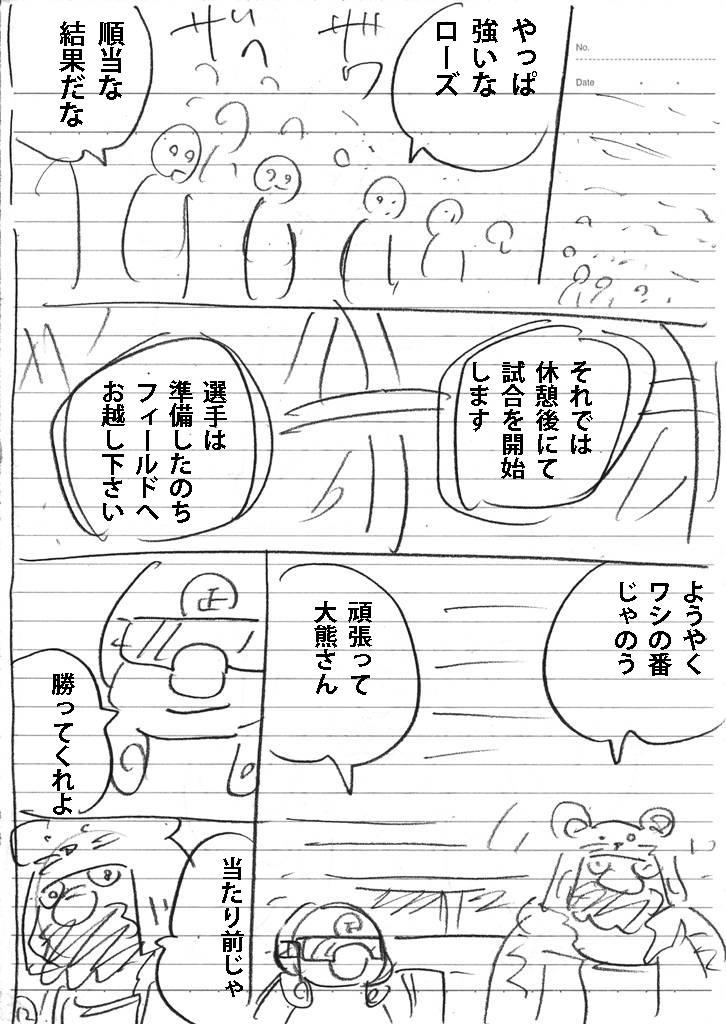 No.
Date
やっぱ
強いな
ローズ
ザワ
ザワ
順当な
結果だな
それでは
休憩後にて
試合を開始
します
選手は
準備したのち
フィールドへ
お越し下さい
ようやく
ワシの番
じゃのう
頑張って
大熊さん
正
勝ってくれよ
正
当たり前じゃ
12